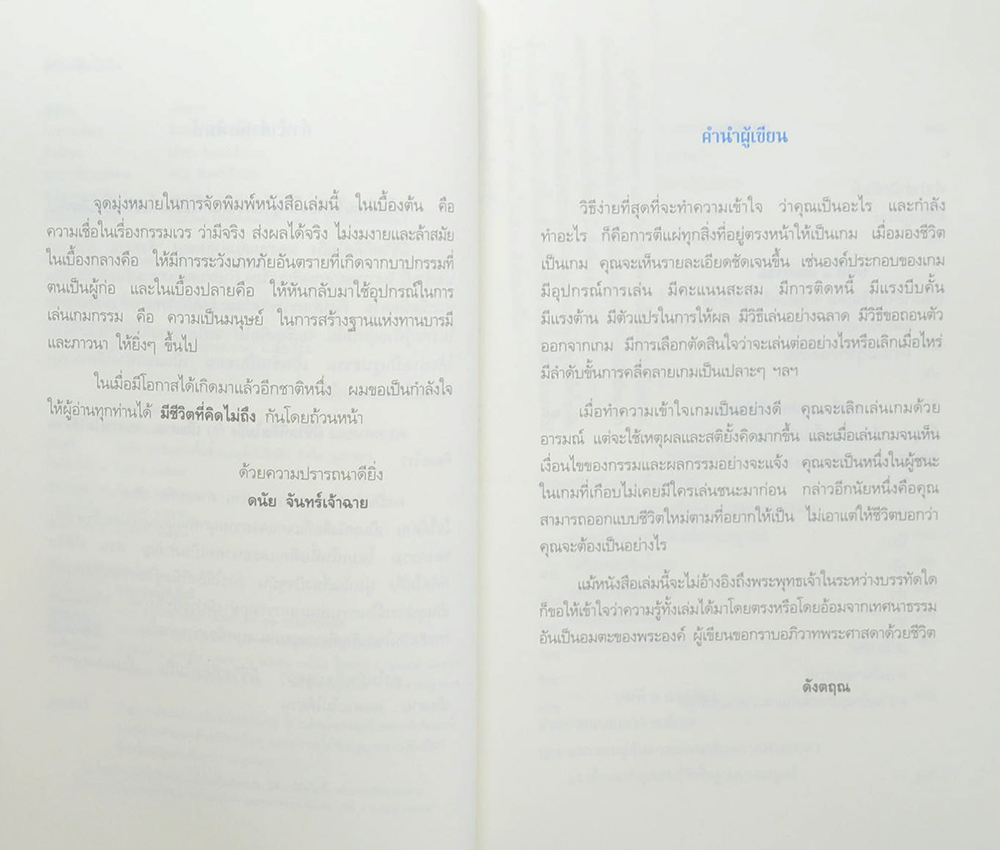 จุดมุ่งหมายในการจัดพิมพ์หนังสือเล่มนี้ ในเบื้องต้น คือ
ความเชื่อในเรื่องกรรมเวร ว่ามีจริง ส่งผลได้จริง ไม่งมงายและล้าสมัย
ในเบื้องกลางคือ ให้มีการระวังเภทภัยอันตรายที่เกิดจากบาปกรรมที่
ตนเป็นผู้ก่อ และในเบื้องปลายคือ ให้หันกลับมาใช้อุปกรณ์ในการ
เล่นเกมกรรม คือ ความเป็นมนุษย์ ในการสร้างฐานแห่งทานบารมี
และภาวนา ให้ยิ่งๆ ขึ้นไป
ในเมื่อมีโอกาสได้เกิดมาแล้วอีกชาติหนึ่ง ผมขอเป็นกำลังใจ
ให้ผู้อ่านทุกท่านได้ มีชีวิตที่คิดไม่ถึง กันโดยถ้วนหน้า
ด้วยความปรารถนาดียิ่ง
ดนัย จันทร์เจ้าฉาย
คำนำผู้เขียน
วิธีง่ายที่สุดที่จะทำความเข้าใจ ว่าคุณเป็นอะไร และกำลัง
ทำอะไร ก็คือการตีแผ่ทุกสิ่งที่อยู่ตรงหน้าให้เป็นเกม เมื่อมองชีวิต
เป็นเกม คุณจะเห็นรายละเอียดชัดเจนขึ้น เช่นองค์ประกอบของเกม
มีอุปกรณ์การเล่น มีคะแนนสะสม มีการติดหนี้ มีแรงบีบคั้น
มีแรงต้าน มีตัวแปรในการให้ผล มีวิธีเล่นอย่างฉลาด มีวิธีขอถอนตัว
ออกจากเกม มีการเลือกตัดสินใจว่าจะเล่นต่ออย่างไรหรือเลิกเมื่อไหร่
มีลำดับขั้นการคลี่คลายเกมเป็นเปลาะๆ ฯลฯ
เมื่อทำความเข้าใจเกมเป็นอย่างดี คุณจะเลิกเล่นเกมด้วย
อารมณ์ แต่จะใช้เหตุผลและสติยั้งคิดมากขึ้น และเมื่อเล่นเกมจนเห็น
เงื่อนไขของกรรมและผลกรรมอย่างจะแจ้ง คุณจะเป็นหนึ่งในผู้ชนะ
ในเกมที่เกือบไม่เคยมีใครเล่นชนะมาก่อน กล่าวอีกนัยหนึ่งคือคุณ
สามารถออกแบบชีวิตใหม่ตามที่อยากให้เป็น ไม่เอาแต่ให้ชีวิตบอกว่า
คุณจะต้องเป็นอย่างไร
แม้หนังสือเล่มนี้จะไม่อ้างอิงถึงพระพุทธเจ้าในระหว่างบรรทัดใด
ก็ขอให้เข้าใจว่าความรู้ทั้งเล่มได้มาโดยตรงหรือโดยอ้อมจากเทศนาธรรม
อันเป็นอมตะของพระองค์ ผู้เขียนขอกราบอภิวาทพระศาสดาด้วยชีวิต
ดังตฤณ